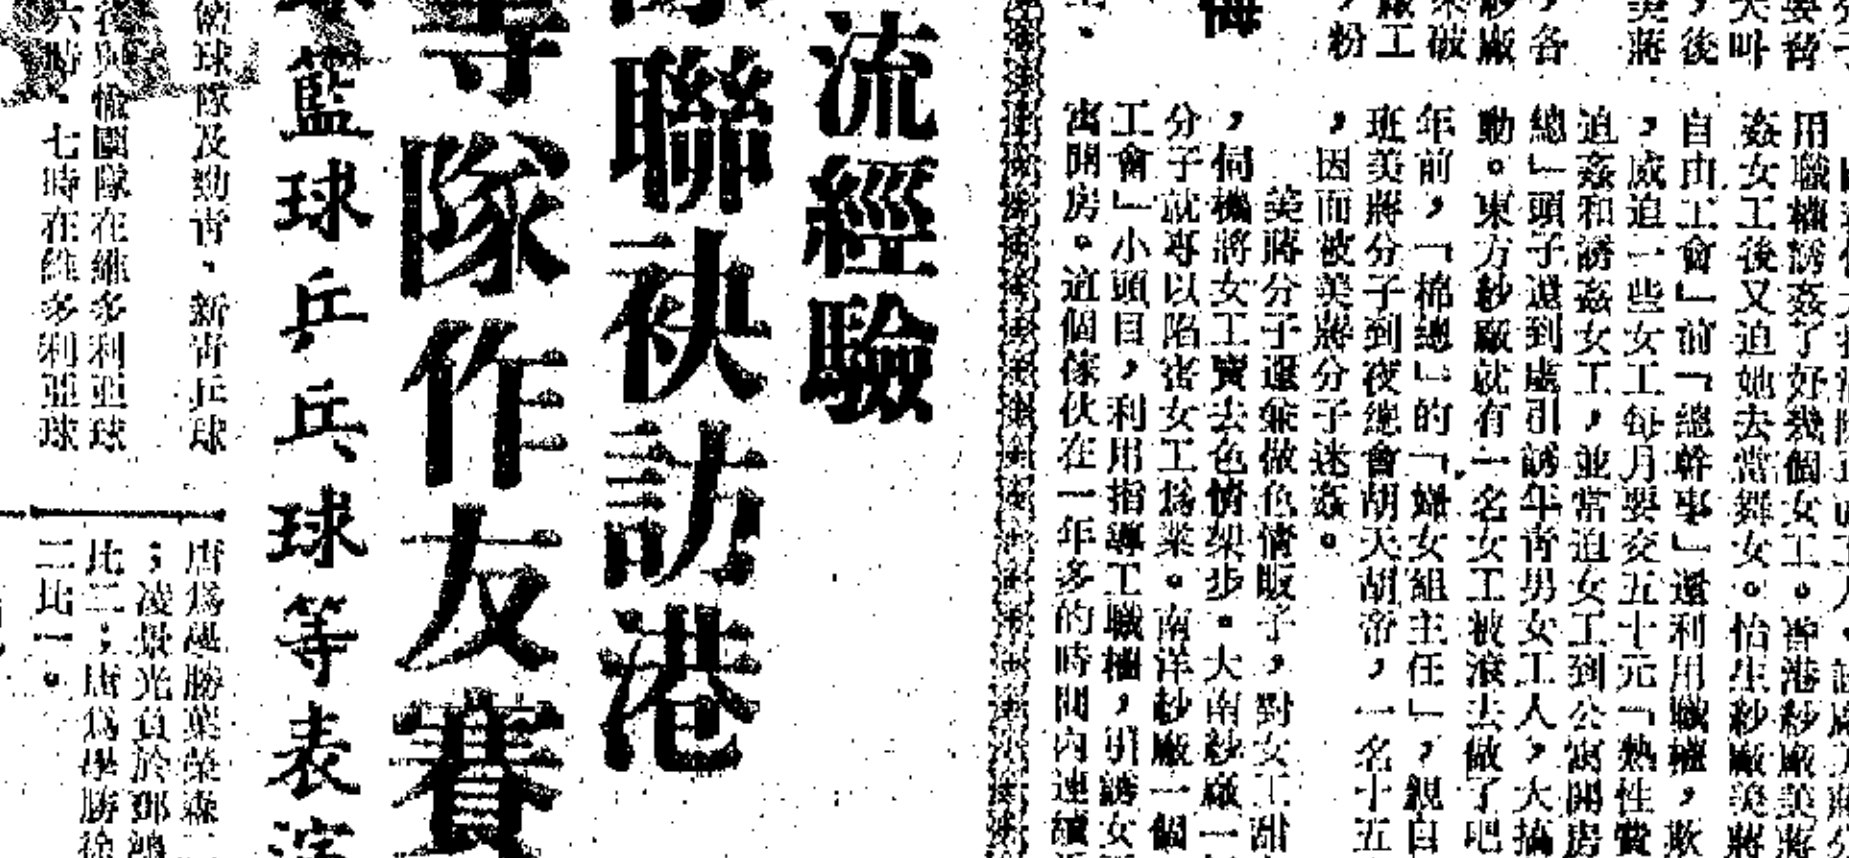 用職權誘姦了好幾個女工。香港紗廠美蔣
姦女工後又迫她去當舞女。怡生紗廠美蔣
自由工會」前「總幹事」還利用職權，欺
，威迫一些女工每月要交五十元「熱性費
迫姦和誘姦女工，並常迫女工到公寓開房
總」頭子還到處引誘年青男女工人，大搞
動。東方紗廠就有一名女工被滾去做了吧
年前，「棉總」的「婦女組主任」，親自
班美蔣分子到夜總會胡天胡帝，一名十五
，因而被美蔣分子迷姦。
美蔣分子還兼做色情販子，對女工甜
，伺機將女工賣去色情架步。大南紗廠一
分子就專以陷害女工為業。南洋紗廠一個
工會」小頭目，利用指導工職權，引誘女
寓開房。這個傢伙在一年多的時間內連續
流經驗
聯袂訪港
等隊作友賽
籃球乒乓球等表演
球隊及幼青，新青乒球
愉園隊在維多利亞球
六時、七時在維多利亞球
唐為學勝葉榮森
；凌景光負於鄧鴻
比二；唐為學勝徐
二比一。